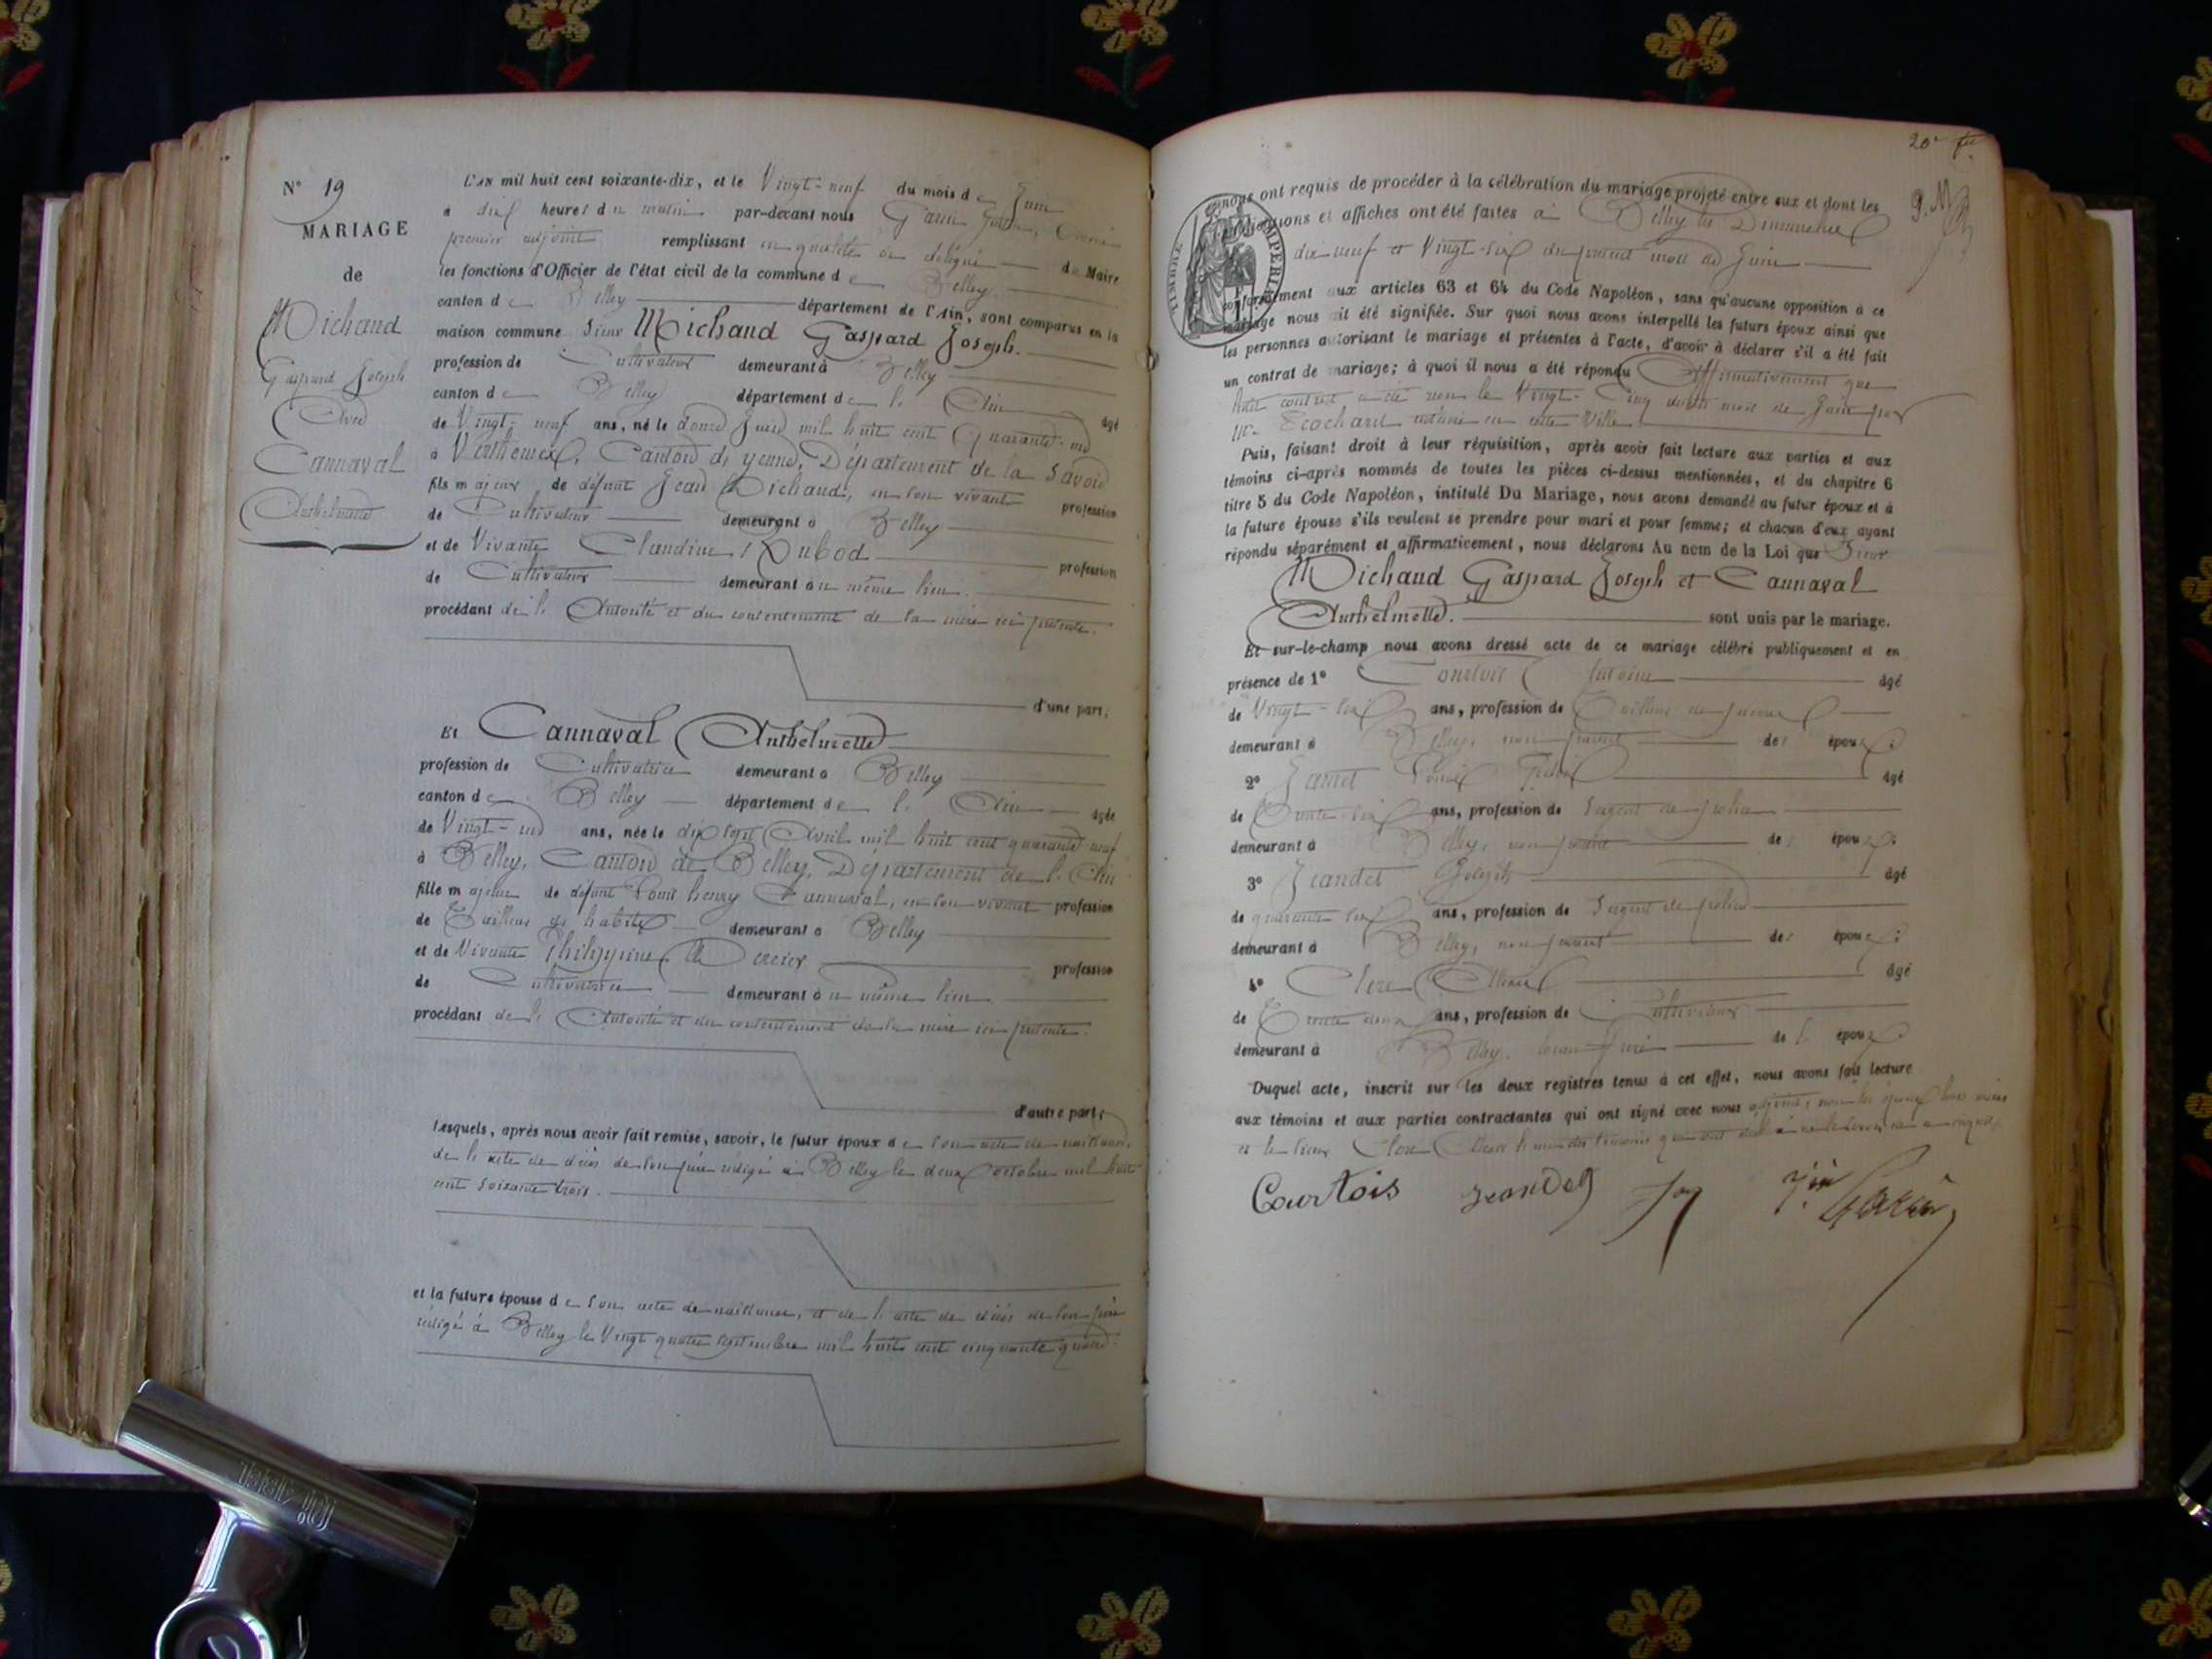 N° 19
MARIAGE
de
Michaud
Gaspard Joseph
Avec
Cannaval
Anthelmette
L'AN mil huit cent soixante-dix, et le Vingt-neuf du mois de Juin
à dix heures du matin par-devant nous
premier adjoint remplissant en qualité de délégué du Maire
les fonctions d'Officier de l'état civil de la commune de Belley
canton de Belley département de l'Ain, sont comparus en la
maison commune Sieur Michaud Gaspard Joseph.
profession de Cultivateur demeurant à Belley
canton de Belley département de l'Ain âgé
de Vingt-neuf ans, né le douze Juin mil huit cent Quarante-un
à Canton de yenne, Département de la Savoie
fils majeur de défunt Jean Michaud, en son vivant profession
de Cultivateur demeurant à Belley
et de Vivante Claudine Dubod profession
de Cultivateur demeurant au même lieu.
procédant de l'Autorité et du consentement de la mère ici présente.
d'une part;
Et Cannaval Anthelmette
profession de Cultivatrice demeurant à Belley
canton de Belley département de l'Ain âgée
de Vingt-un ans, née le dix sept Avril mil huit cent quarante neuf
à Belley, Canton de Belley, Département de l'Ain
fille majeure de défunt Louis henry Cannaval, en son vivant profession
de Tailleur d'habits demeurant à Belley
et de Vivante Philippine Mercier profession
de Cultivatrice demeurant au même lieu.
procédant de l'Autorité et du consentement de la mère ici présente.
d'autre part;
Lesquels, après nous avoir fait remise, savoir, le futur époux de son acte de naissance,
de l'acte de décès de son père rédigé à Belley le deux octobre mil huit
cent soixante trois.
et la future épouse de son acte de naissance, et de l'acte de décès de son père
rédigé à Belley le Vingt quatre septembre mil huit cent cinquante
20e
P. M
TIMBRE IMPERIAL
nous ont requis de procéder à la célébration du mariage projeté entre eux et dont les
publications et affiches ont été faites à Belley les Dimanches
dix neuf et Vingt-six du présent mois de Juin
conformément aux articles 63 et 64 du Code Napoléon, sans qu'aucune opposition à ce
mariage nous ait été signifiée. Sur quoi nous avons interpellé les futurs époux ainsi que
les personnes autorisant le mariage et présentes à l'acte, d'avoir à déclarer s'il a été fait
un contrat de mariage; à quoi il nous a été répondu Affirmativement que
le Vingt-Cinq mois de Juin par
Me Ecochard notaire en cette Ville
Puis, faisant droit à leur réquisition, après avoir fait lecture aux parties et aux
témoins ci-après nommés de toutes les pièces ci-dessus mentionnées, et du chapitre 6
titre 5 du Code Napoléon, intitulé Du Mariage, nous avons demandé au futur époux et à
la future épouse s'ils veulent se prendre pour mari et pour femme; et chacun d'eux ayant
répondu séparément et affirmativement, nous déclarons Au nom de la Loi que Sieur
Michaud Gaspard Joseph et Cannaval
Anthelmette. sont unis par le mariage.
Et sur-le-champ nous avons dressé acte de ce mariage célébré publiquement et en
présence de 1° Courtois Antoine âgé
de Vingt-six ans, profession de Tailleur de pierres
demeurant à Belley, non parent des époux;
2° Louis âgé
de Trente-six ans, profession de Sergent de police
demeurant à Belley, non parent des époux;
3° Jeandet Joseph âgé
de quarante six ans, profession de Sergent de police
demeurant à Belley, non parent des époux;
4° Clerc âgé
de Trente deux ans, profession de Cultivateur
demeurant à Belley, de l'époux
Duquel acte, inscrit sur les deux registres tenus à cet effet, nous avons fait lecture
aux témoins et aux parties contractantes qui ont signé avec nous adjoint, non les époux leurs mères
et le sieur Clerc l'un des témoins qui ont déclaré ne le savoir
Courtois Jeandet